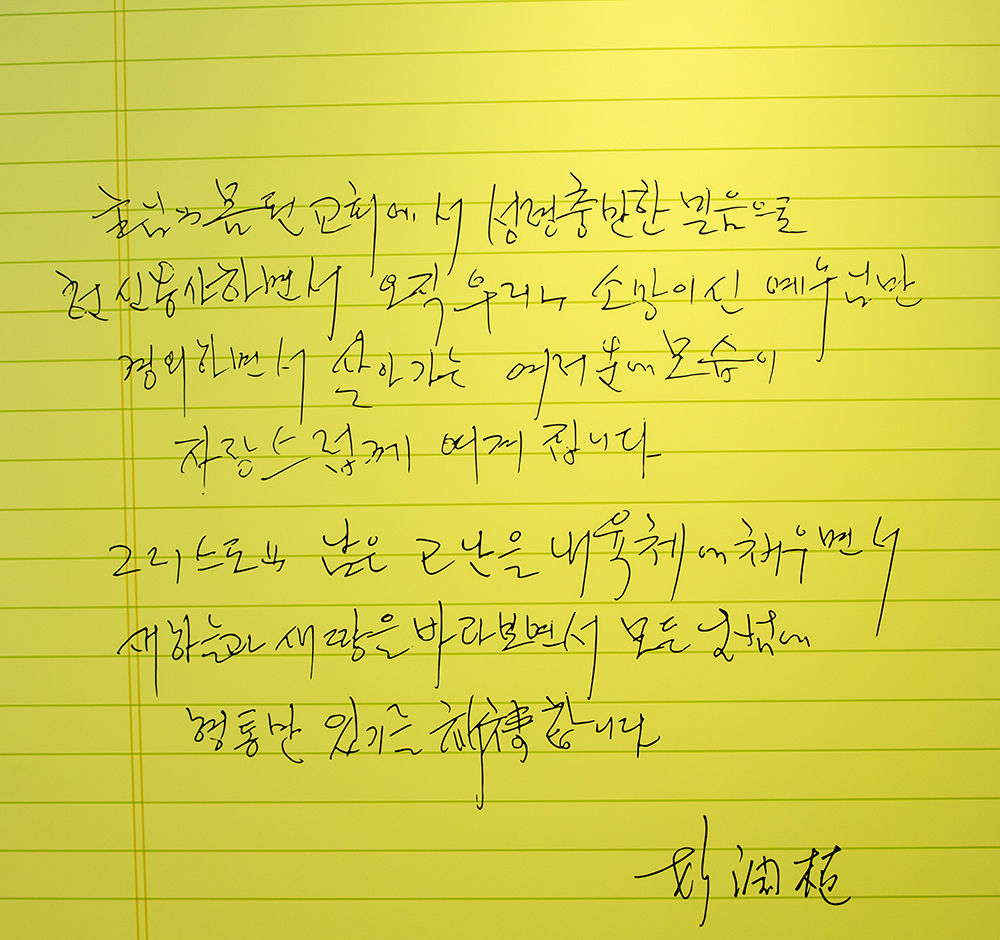 주님의 몸된 교회에서 성령충만한 믿음으로
헌신봉사하면서 오직 우리의 소망이신 예수님만
경외하면서 살아가는 여러분에 모습이
자랑스럽께 여겨 집니다
그리스도의 남은 고난을 내 육체에 채우면서
새하늘과 새땅을 바라보면서 모든
형통만 있기를 祈禱합니다